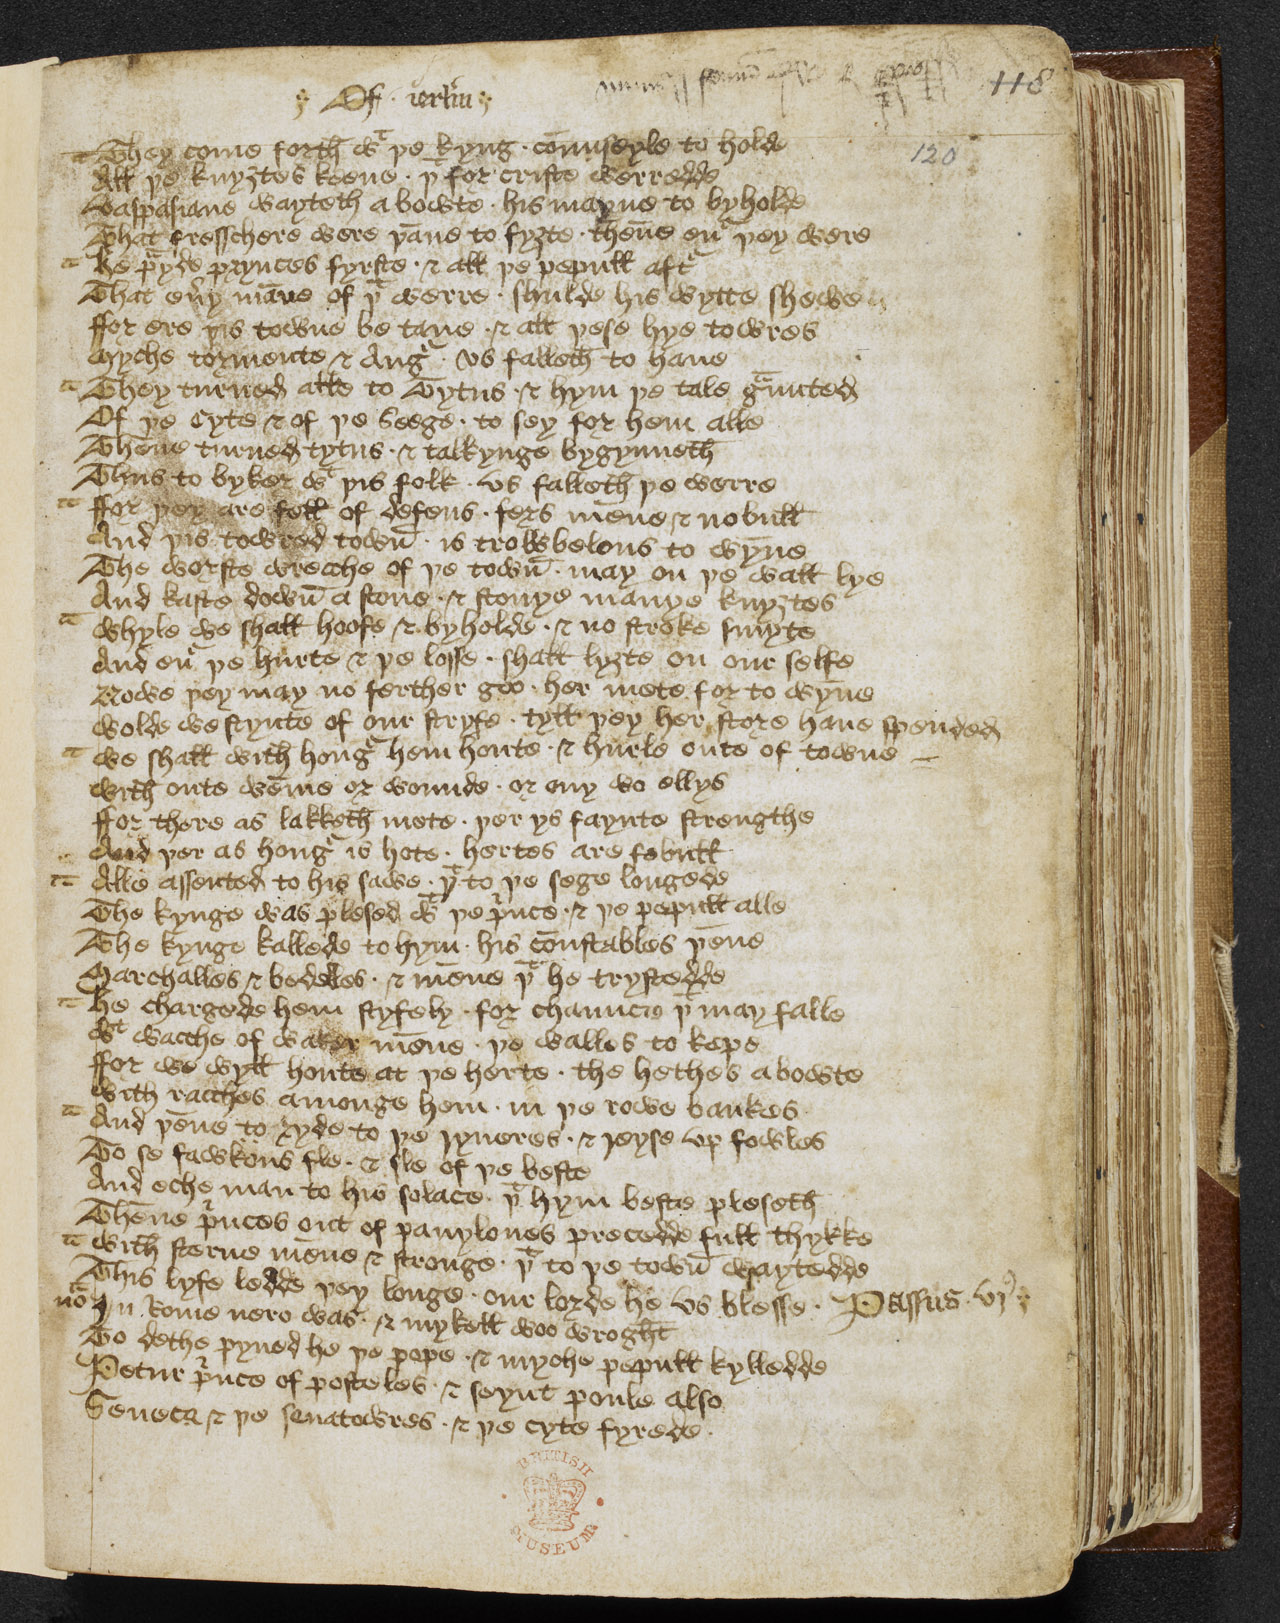 Of · ierlm
118
120
They come forth wt þe kyng · counseyle to holde
All þe knyȝtes keene · þt for criste werredde
Vaspasiane wayteth a bowte · his mayne to byholde
That fresschere were þāne to fyȝte · thēne eur þey were
he prayde prynces fyrste · & all þe pepull aftr
That eury māne of þt werre · shulde his wytte shewe
ffor ere þis towne be tane · & all þese hye towres
Myche tormente & Angr · vs falleth to haue
They turned alle to Tytus · & hym þe tale graunted
Of þe Cyte & of þe Seege · to sey for hem alle
Thēne turned tytus · & talkynge bygynneth
Thus to byker wt þis folk · vs falleth þe werre
ffor þey are full of defens · fers mēne & nobull
And þis towred towū · is trowbelous to wȳne
The worste wrecche of þe towū · may on þe wall lye
And kaste dowū a stone · & stonye manye knyȝtes
Whyle we shall hoofe & byholde · & no stroke smyte
And eur þe hurte & þe losse · shall lyȝte on our selfe
Nowe þey may no ferther goo · her mete for to wȳne
Wolde we stynte of our stryfe · tyll þey her store haue spended
We shall with hongr hem honte · & hurle oute of towne
With oute wēme or wounde · or eny wo ellys
ffor there as lakketh mete · þer ys faynte strengthe
And þer as hongr is hote · hertes are febull
Alle assented to his sawe · þt to þe sege longede
The kynge was plesed wt þe prince · & þe pepull alle
The kynge kallede to hym · his cōnstables þēne
Marchalles & bedelles · & mēne þt he trystedde
he chargede hem styfely · for chaunce þt may falle
Wt wacche of waker mēne · þe walles to kepe
ffor we wyll honte at þe herte · the hethes a bowte
With racches amonge hem · in þe rowe bankes
And þēne to ryde to þe ryueres · & reyse vp fowles
To se fawkons fle · & sle of þe beste
And eche man to his solace · þt hym beste pleseth
Thēne princes out of pauylones precedde full thykke
With sterne mēne & stronge · þt to þe towū waytedde
This lyfe ledde þey longe · our lorde he vs blesse · Passus · vjus
nō In Rome nero was · & mykell woo wroght
To dethe pyned he þe pope · & myche pepull kylledde
Petur prince of posteles · & seynt poule also
Seneca & þe senatowres · & þe cyte fyrede ·
BRITISH MUSEUM